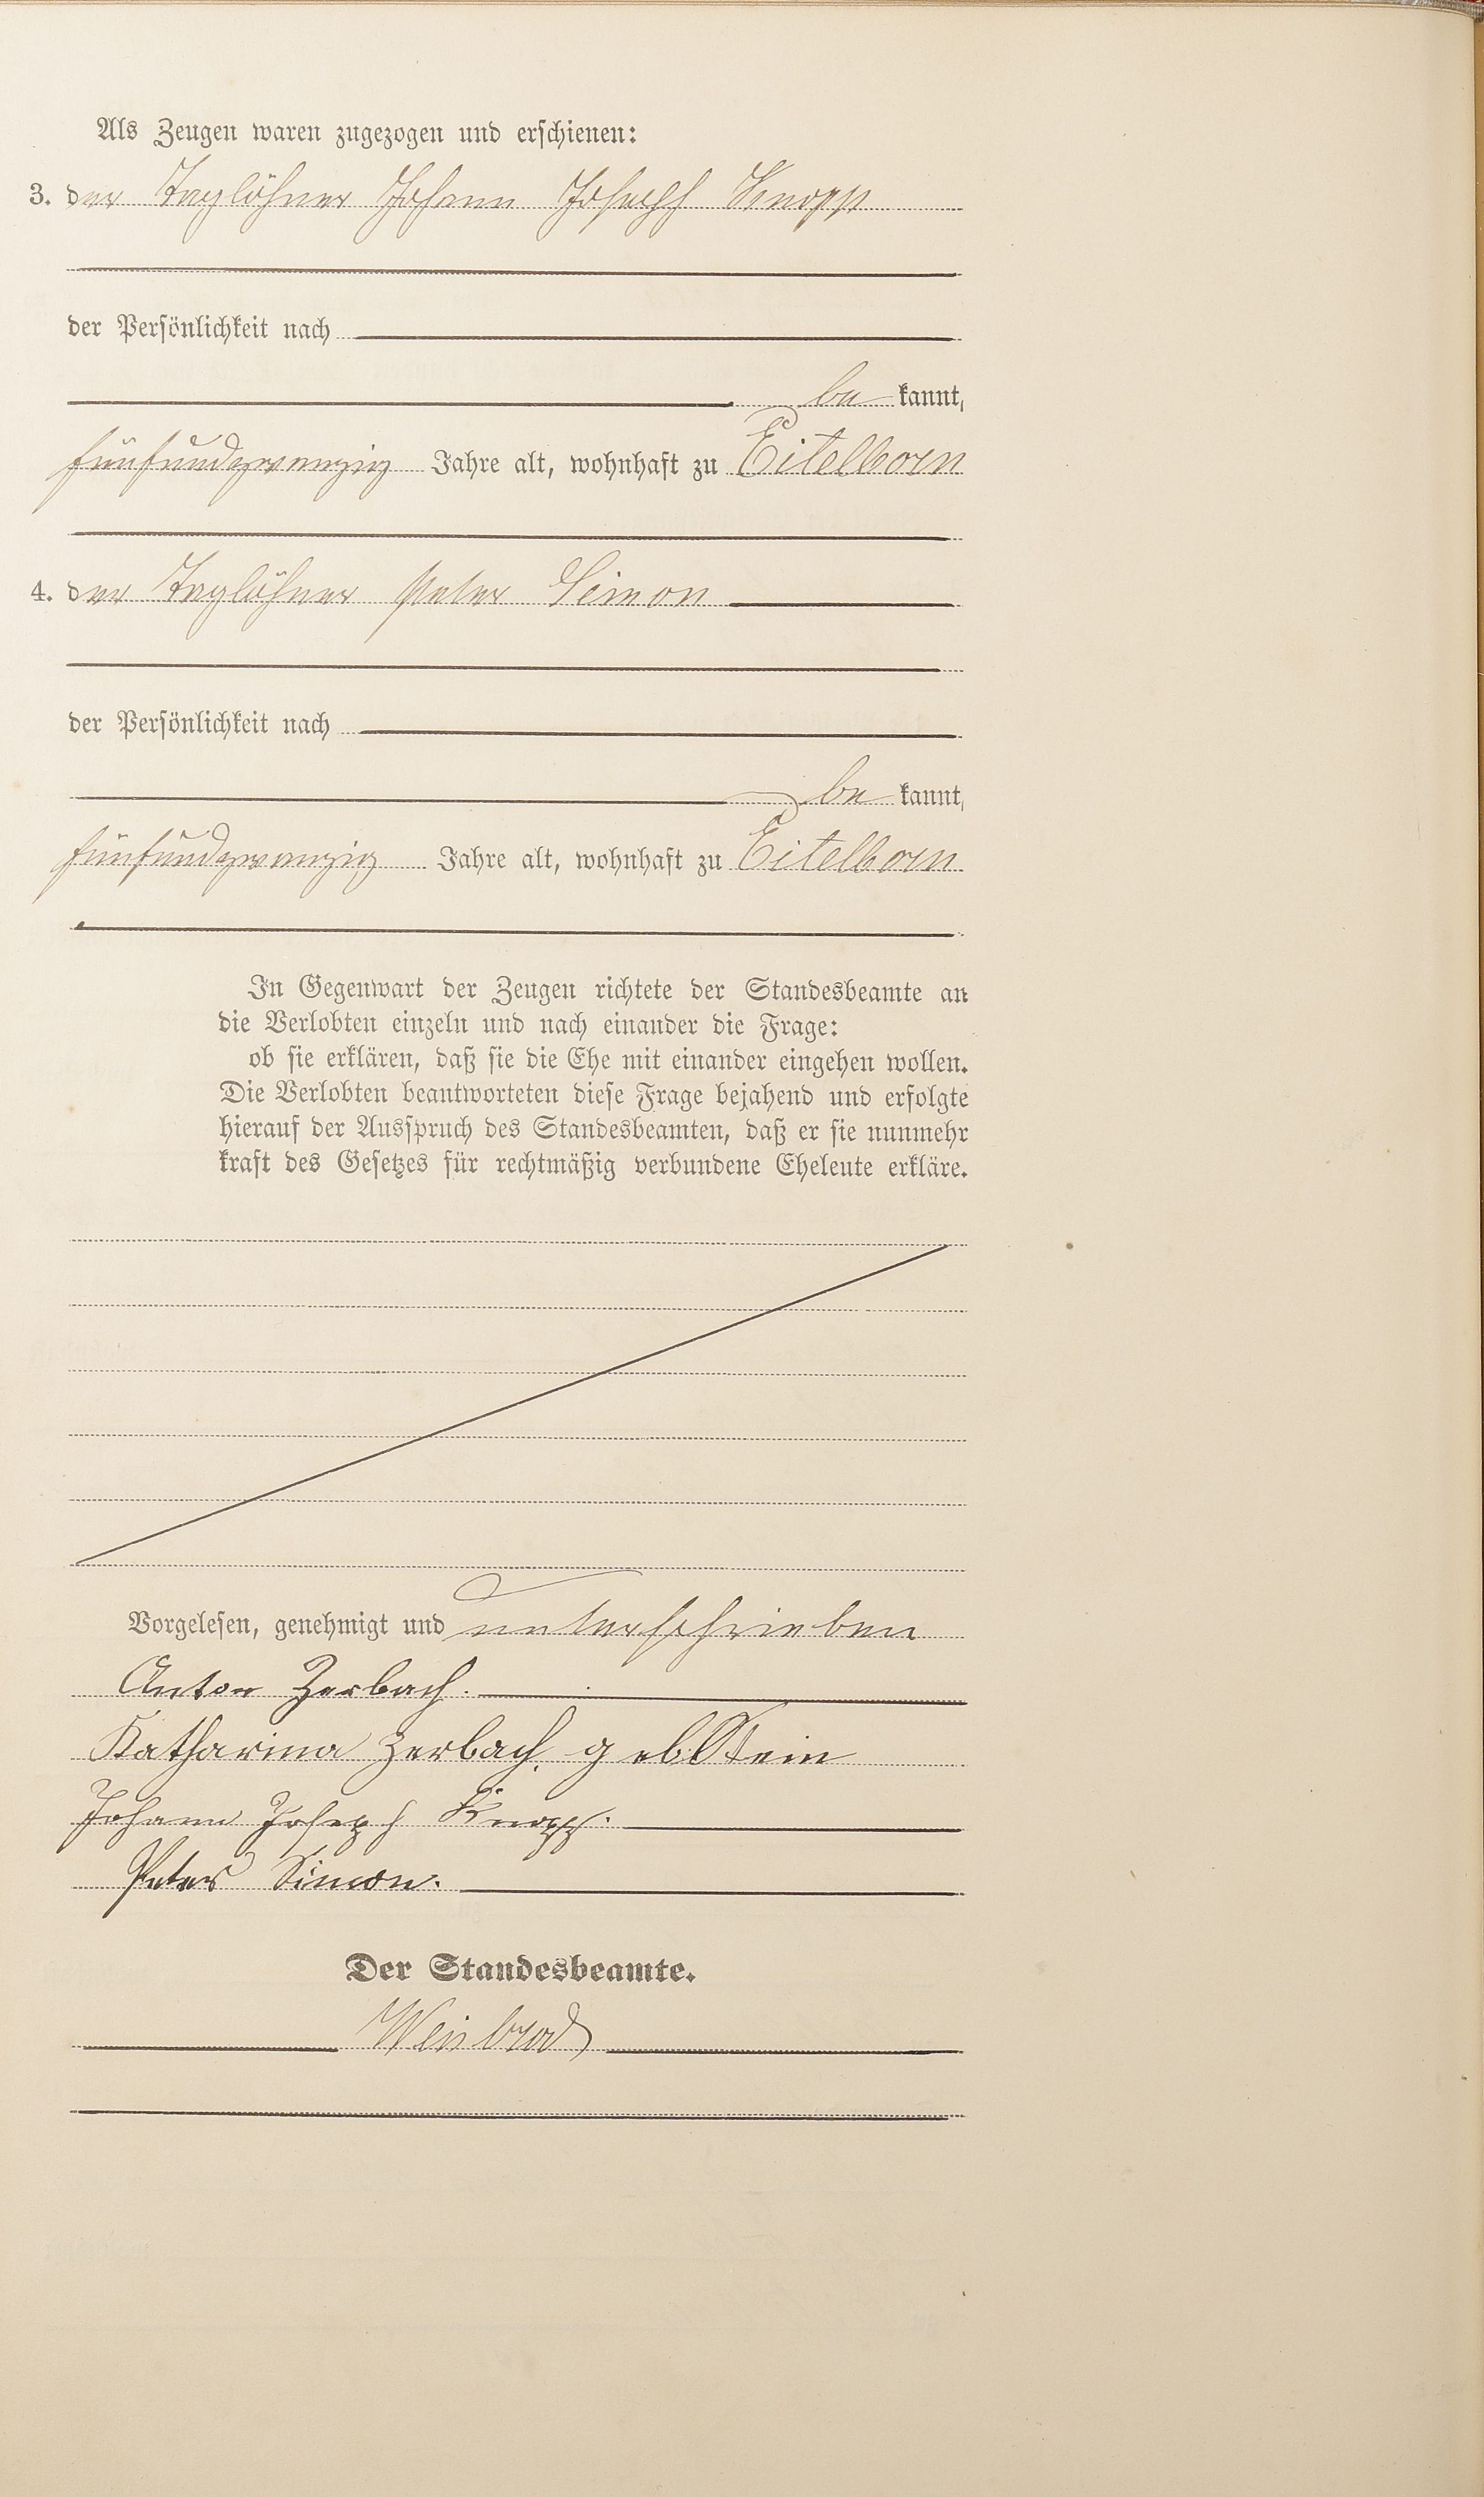 Als Zeugen waren zugezogen und erschienen:
3. der Taglöhner Johann Joseph Knopp
der Persönlichkeit nach
be kannt,
fünfundzwanzig Jahre alt, wohnhaft zu Eitelborn
4. der Taglöhner Peter Simon
der Persönlichkeit nach
be kannt,
fünfundzwanzig Jahre alt, wohnhaft zu Eitelborn
In Gegenwart der Zeugen richtete der Standesbeamte an
die Verlobten einzeln und nach einander die Frage:
ob sie erklären, daß sie die Ehe mit einander eingehen wollen.
Die Verlobten beantworteten diese Frage bejahend und erfolgte
hierauf der Ausspruch des Standesbeamten, daß er sie nunmehr
kraft des Gesetzes für rechtmäßig verbundene Eheleute erkläre.
Vorgelesen, genehmigt und unterschrieben
Anton Zerbach.
Katharina Zerbach, geb Stein
Johann Joseph Knopp.
Peter Simon.
Der Standesbeamte.
Weisbrod